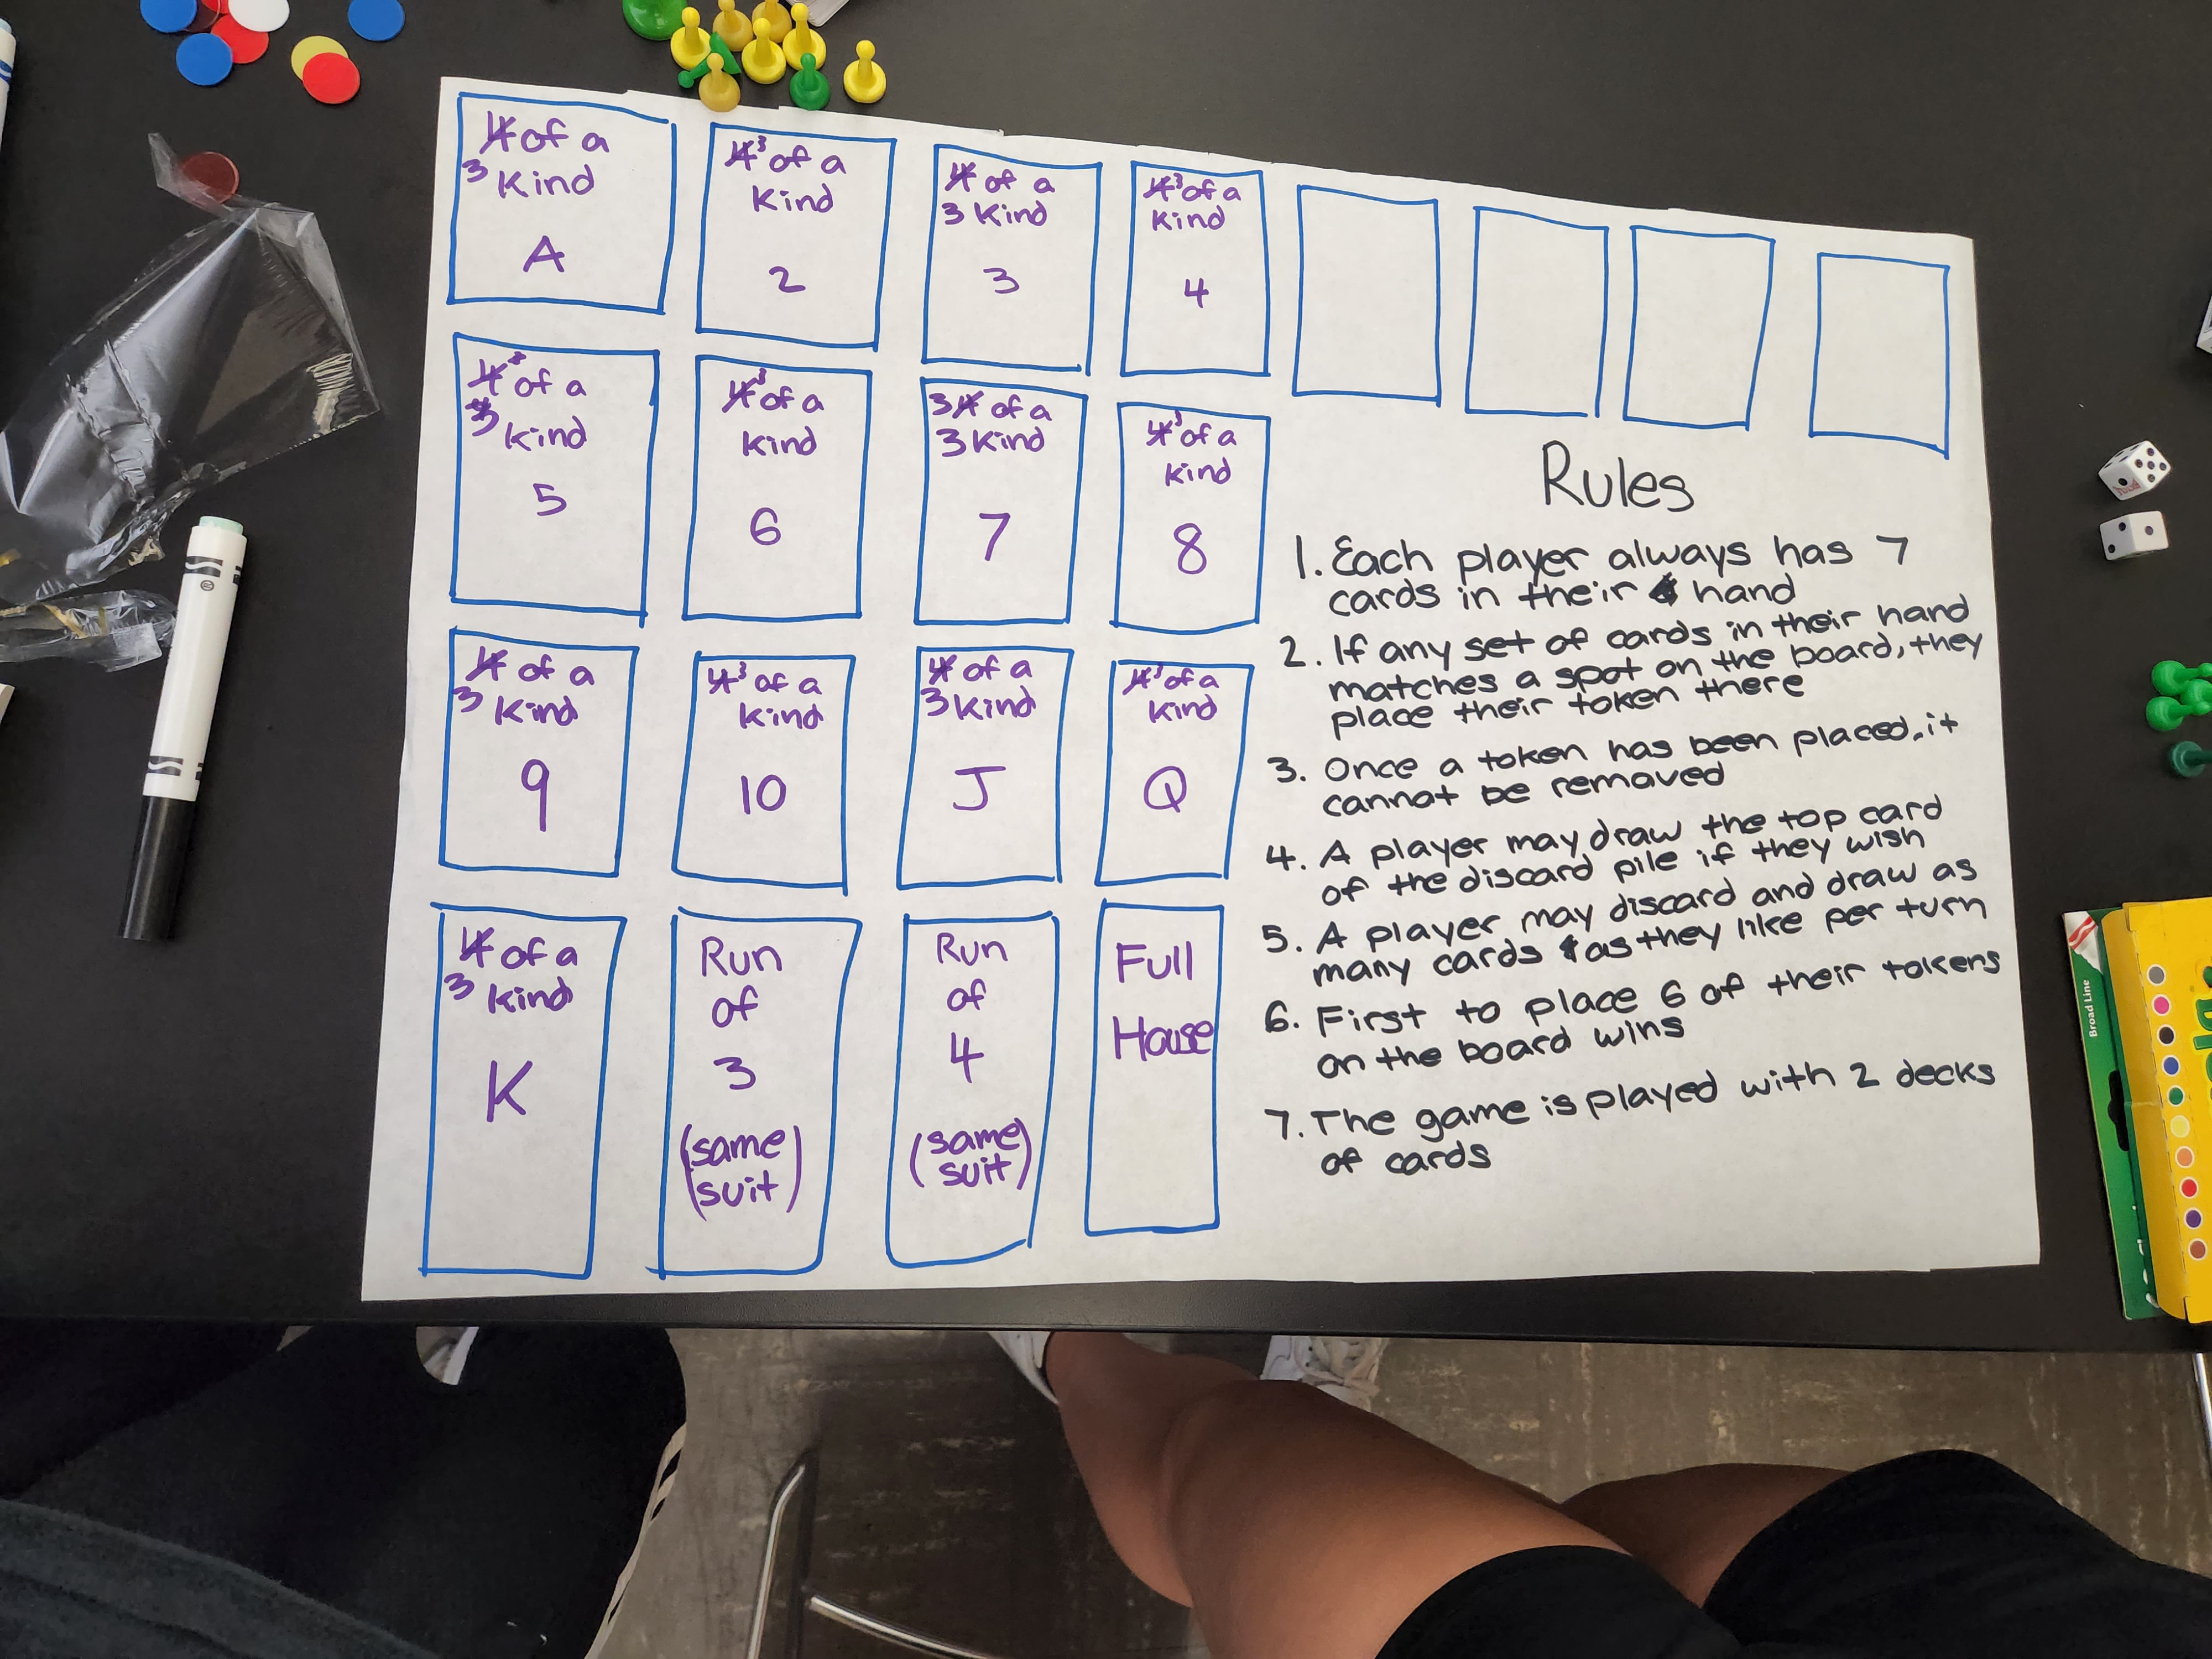 4 of a
3 Kind
A
4 3 of a
Kind
2
4 of a
3 Kind
3
4 3 of a
Kind
4
4 3 of a
3 kind
5
4 3 of a
Kind
6
3 4 of a
3 Kind
7
4 3 of a
kind
8
4 of a
3 Kind
9
4 3 of a
Kind
10
4 of a
3 Kind
J
4 3 of a
Kind
Q
4 of a
3 kind
K
Run
of
3
(same
suit)
Run
of
4
(same
suit)
Full
House
Rules
1. Each player always has 7
cards in their hand
2. If any set of cards in their hand
matches a spot on the board, they
place their token there
3. Once a token has been placed, it
cannot be removed
4. A player may draw the top card
of the discard pile if they wish
5. A player may discard and draw as
many cards as they like per turn
6. First to place 6 of their tokens
on the board wins
7. The game is played with 2 decks
of cards
Broad Line